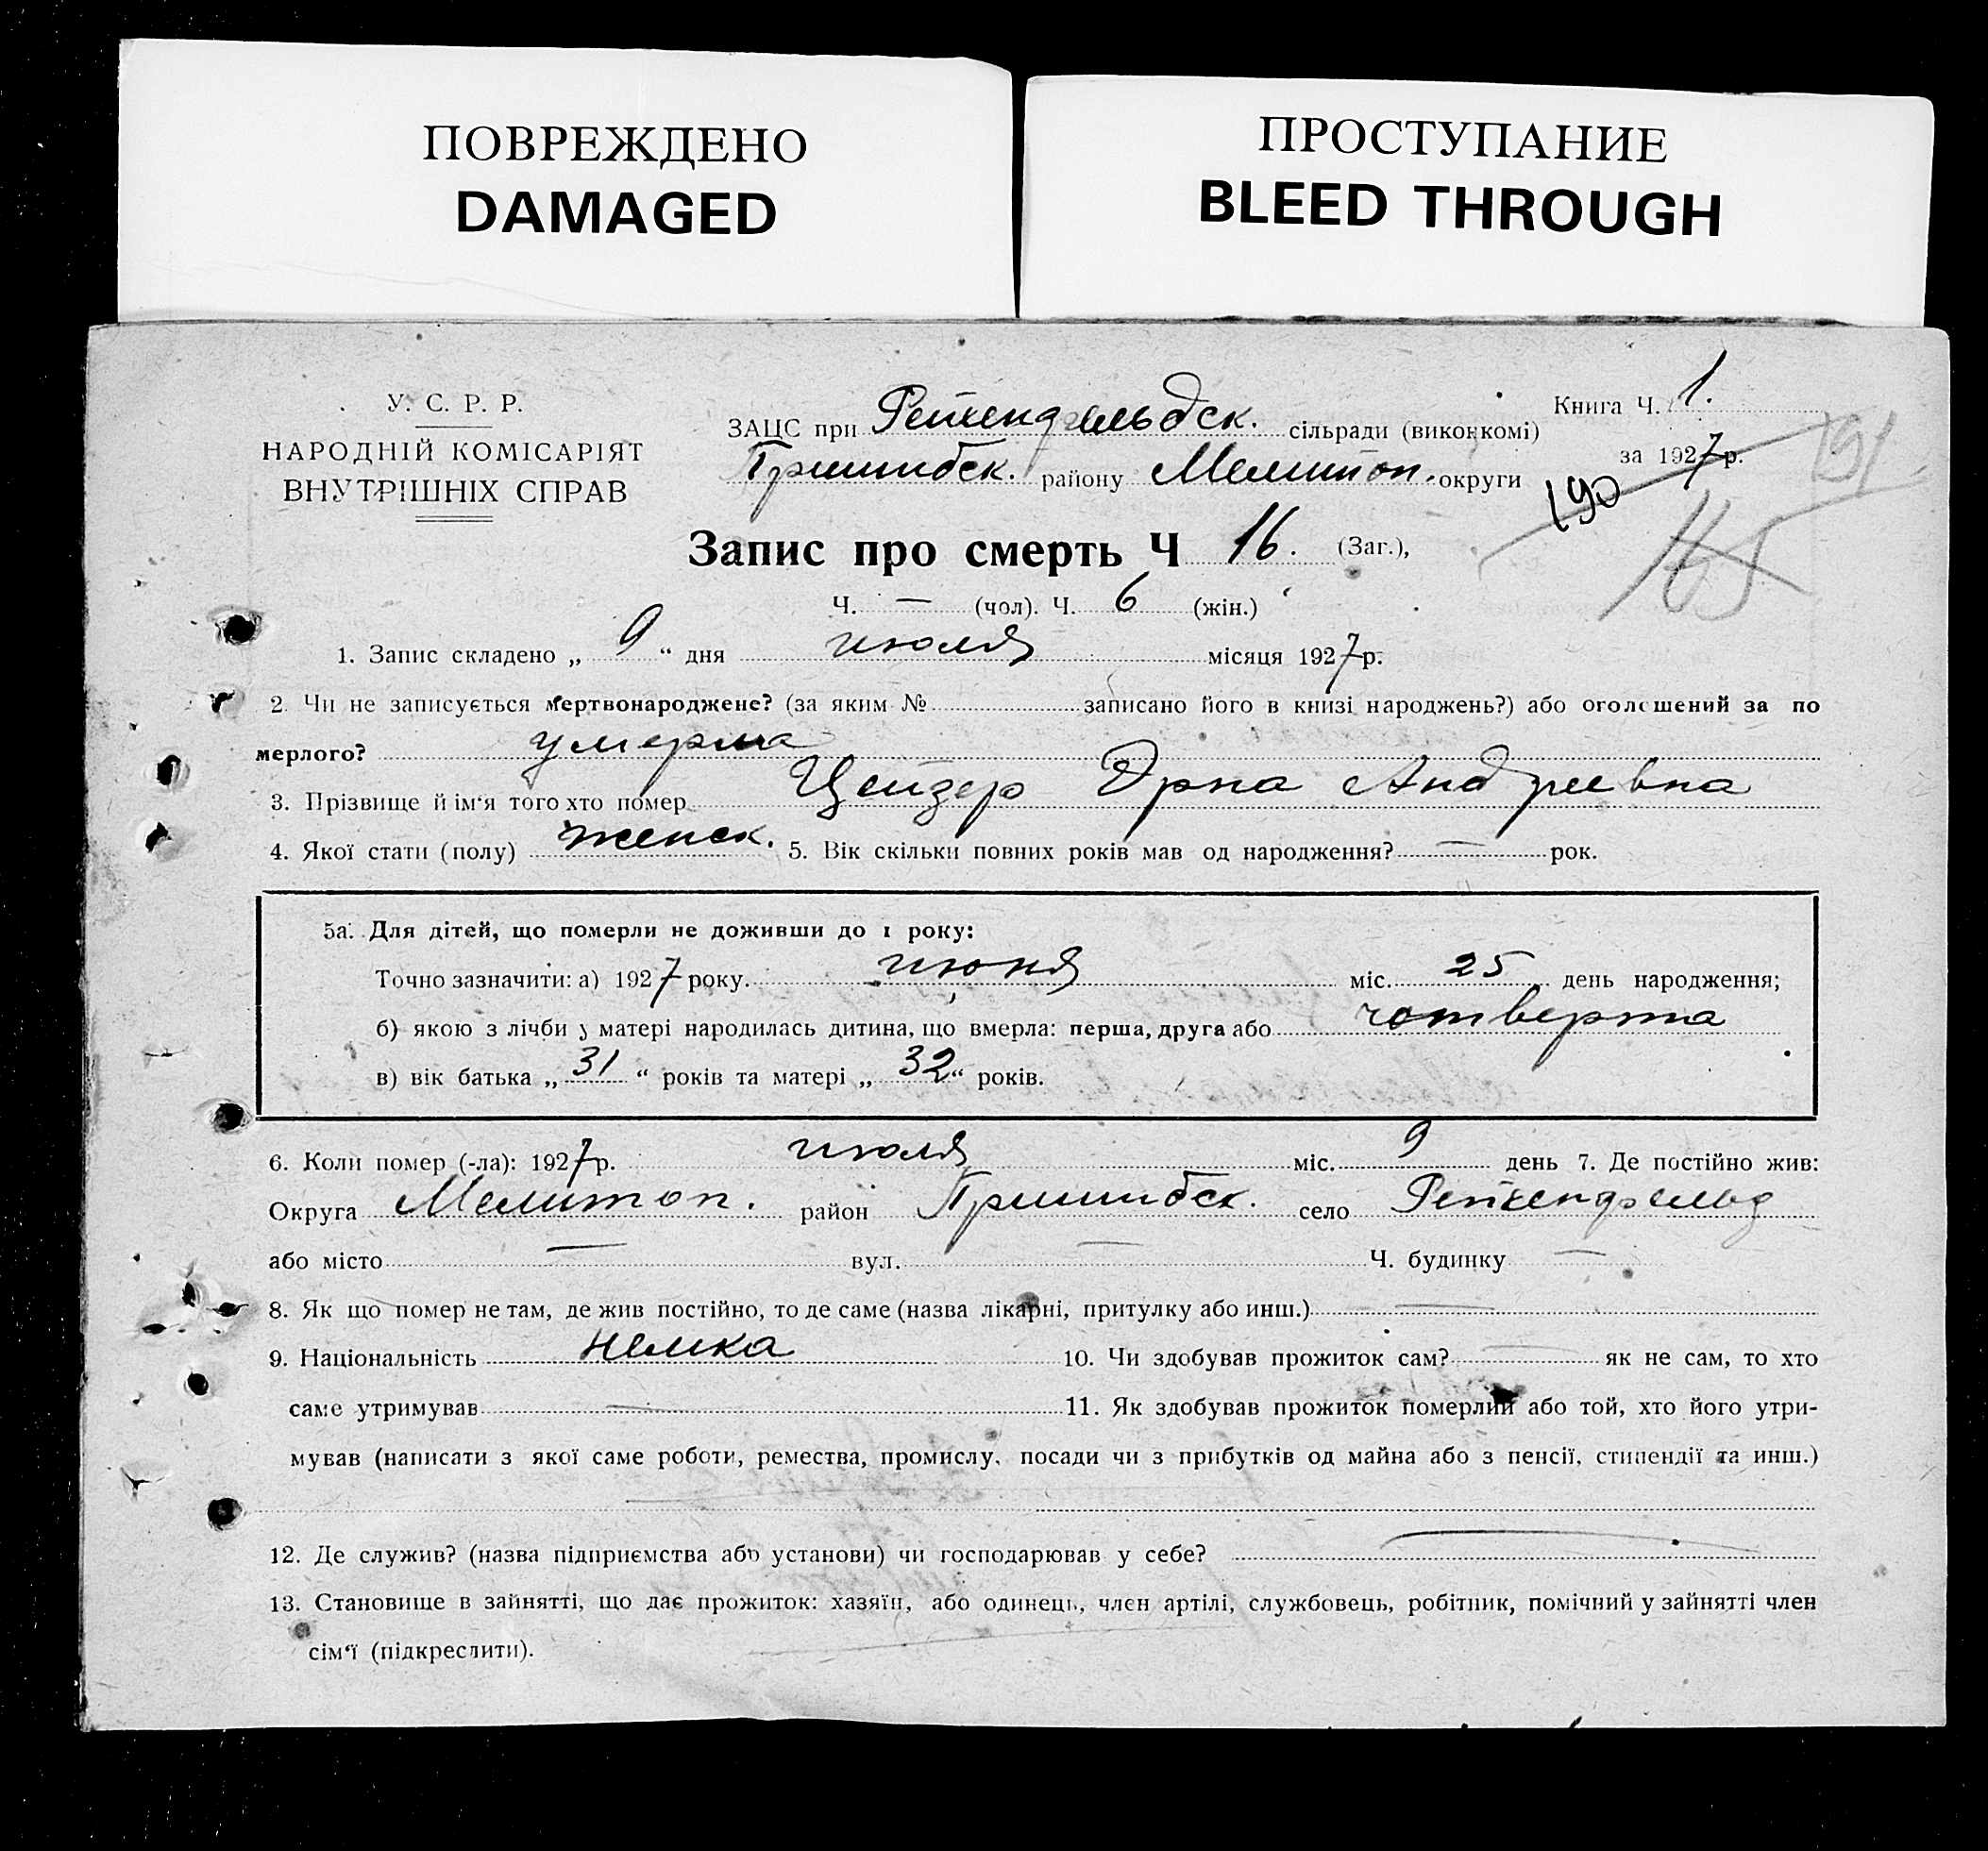 ПОВРЕЖДЕНО
DAMAGED
ПРОСТУПАНИЕ
BLEED THROUGH
У. С. Р. Р.
НАРОДНІЙ КОМІСАРІЯТ
ВНУТРІШНІХ СПРАВ
Книга Ч. 1.
за 1927 р.
191
190
165
ЗАЦС при Рейхенфельдск. сільради (виконкомі)
Пришибск. району Мелитоп. округи
Запис про смерть Ч 16. (Заг.),
Ч. — (чол). Ч. 6 (жін.)
1. Запис складено „ 9 “ дня июля місяця 1927 р.
2. Чи не записується мертвонароджене? (за яким № записано його в книзі народжень?) або оголошений за по
мерлого? умерла
3. Прізвище й ім'я того хто помер Цейзер Эрна Андреевна
4. Якої стати (полу) женск. 5. Вік скільки повних років мав од народження? — рок.
5а. Для дітей, що померли не доживши до 1 року:
Точно зазначити: а) 1927 року. июня міс. 25 день народження;
б) якою з лічби у матері народилась дитина, що вмерла: перша, друга або четверта
в) вік батька „ 31 “ років та матері „ 32 “ років.
6. Коли помер (-ла): 1927 р. июля міс. 9 день 7. Де постійно жив:
Округа Мелитоп. район Пришибск. село Рейхенфельд
або місто — вул. — Ч. будинку —
8. Як що помер не там, де жив постійно, то де саме (назва лікарні, притулку або инш.) —
9. Національність немка 10. Чи здобував прожиток сам? — як не сам, то хто
саме утримував — 11. Як здобував прожиток померлий або той, хто його утри-
мував (написати з якої саме роботи, ремества, промислу, посади чи з прибутків од майна або з пенсії, стипендії та инш.)
12. Де служив? (назва підприємства або установи) чи господарював у себе? —
13. Становище в зайнятті, що дає прожиток: хазяїн, або одинець, член артілі, службовець, робітник, помічний у зайнятті член
сім'ї (підкреслити).